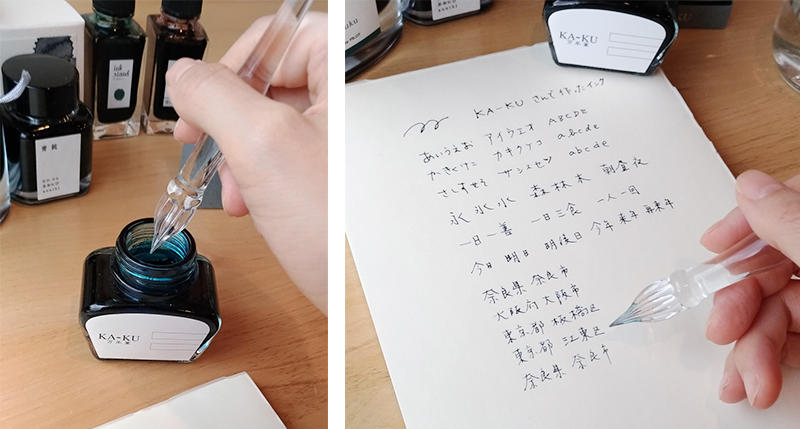 ink
stand
KA-KU
KA-KU
KA-KU さんで作ったインク
あいうえお アイウエオ ABCDE
かきくけこ カキクケコ abcde
さしすせそ サシスセソ abcde
永 氷 水 森 林 木 朝 昼 夜
一日一善 一日三食 一人一回
今日 明日 明後日 今年 来年 再来年
奈良県 奈良市
大阪府 大阪市
東京都 板橋区
東京都 江東区
奈良県 奈良市